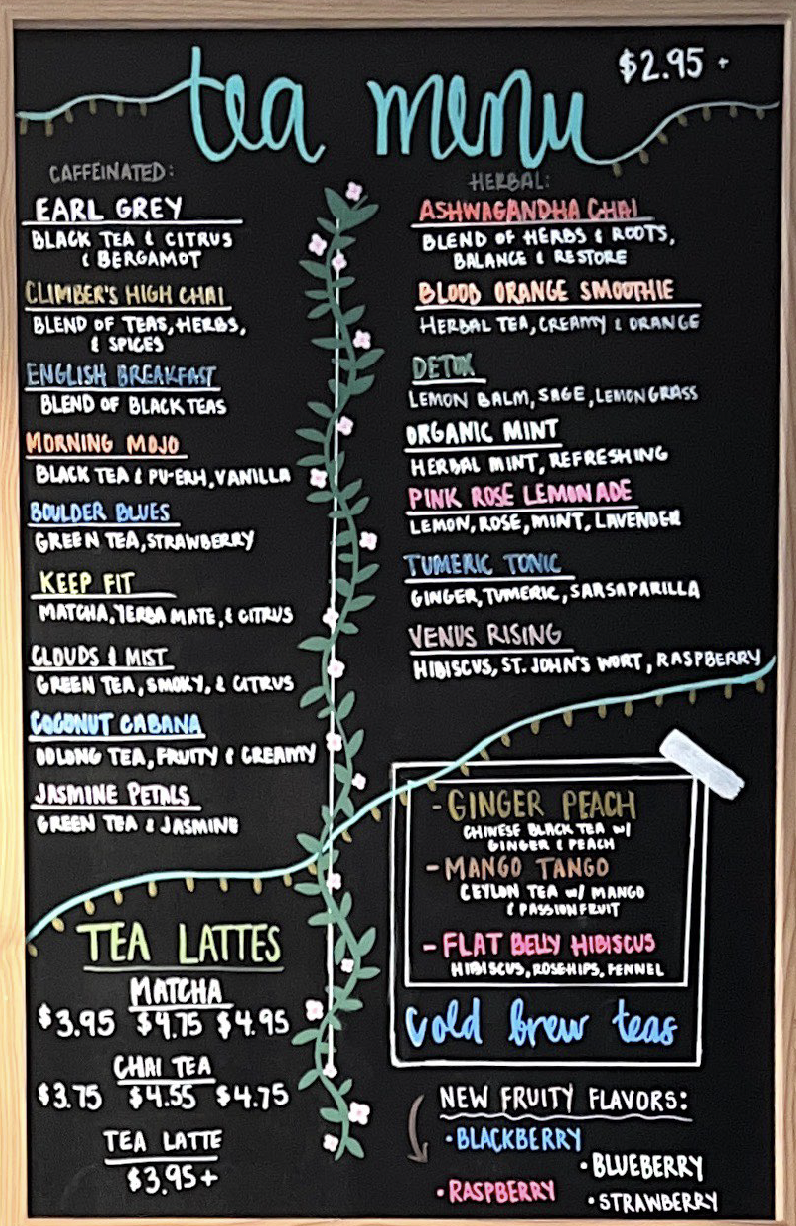 tea menu
$2.95 +
CAFFEINATED:
EARL GREY
BLACK TEA & CITRUS
& BERGAMOT
CLIMBER'S HIGH CHAI
BLEND OF TEAS, HERBS,
& SPICES
ENGLISH BREAKFAST
BLEND OF BLACK TEAS
MORNING MOJO
BLACK TEA & PU-ERH, VANILLA
BOULDER BLUES
GREEN TEA, STRAWBERRY
KEEP FIT
MATCHA, YERBA MATE, & CITRUS
CLOUDS & MIST
GREEN TEA, SMOKY, & CITRUS
COCONUT CABANA
OOLONG TEA, FRUITY & CREAMY
JASMINE PETALS
GREEN TEA & JASMINE
TEA LATTES
MATCHA
$3.95 $4.75 $4.95
CHAI TEA
$3.75 $4.55 $4.75
TEA LATTE
$3.95+
HERBAL:
ASHWAGANDHA CHAI
BLEND OF HERBS & ROOTS,
BALANCE & RESTORE
BLOOD ORANGE SMOOTHIE
HERBAL TEA, CREAMY & ORANGE
DETOX
LEMON BALM, SAGE, LEMONGRASS
ORGANIC MINT
HERBAL MINT, REFRESHING
PINK ROSE LEMONADE
LEMON, ROSE, MINT, LAVENDER
TUMERIC TONIC
GINGER, TUMERIC, SARSAPARILLA
VENUS RISING
HIBISCUS, ST. JOHN'S WORT, RASPBERRY
- GINGER PEACH
CHINESE BLACK TEA W/
GINGER & PEACH
- MANGO TANGO
CEYLON TEA W/ MANGO
& PASSIONFRUIT
- FLAT BELLY HIBISCUS
HIBISCUS, ROSEHIPS, FENNEL
cold brew teas
NEW FRUITY FLAVORS:
• BLACKBERRY
• BLUEBERRY
• RASPBERRY
• STRAWBERRY